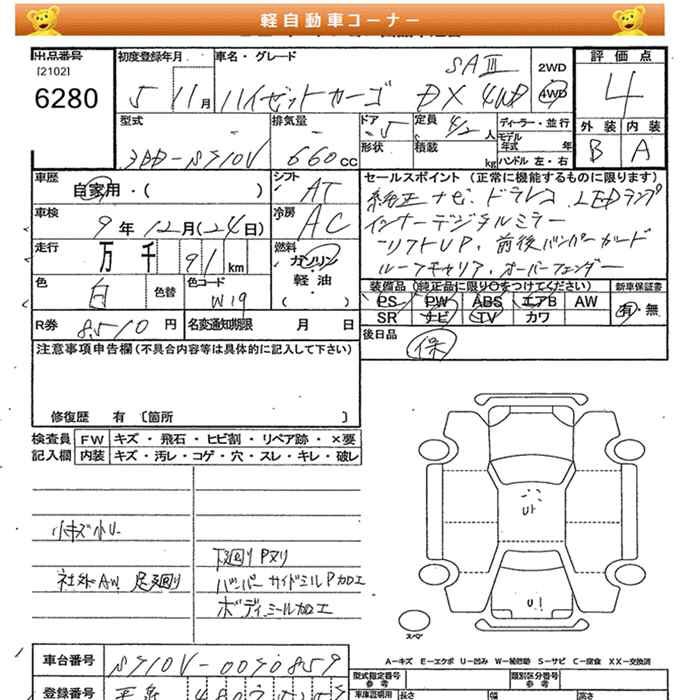 軽自動車コーナー
出品番号 初度登録年月 車名・グレード 評価点
[2102] SAⅢ 2WD
6280 5 11月 ハイゼットカーゴ DX 4WD 4WD 4
型式 排気量 ドア 定員 ディーラー・並行 外装 内装
3BD-S710V 660cc 5 4/2人 モデル年式 年 B A
形状 積載 kg ハンドル 左・右
車歴 シフト セールスポイント (正常に機能するものに限ります)
自家用・( ) AT 純正ナビ、ドラレコ、LEDランプ
車検 冷房 インナーデジタルミラー
9年12月(24日) AC リフトUP、前後バンパーガード
走行 燃料 ルーフキャリア、オーバーフェンダー
万 千 91 km ガソリン・軽油・( )
色 色替 色コード 装備品 (純正品に限り○をつけてください) 新車保証書
白 W19 PS PW ABS エアB AW 有・無
SR ナビ TV カワ
R券 8510円 名変通知期限 月 日 後日品 保
注意事項申告欄(不具合内容等は具体的に記入して下さい)
修復歴 有 〔箇所 〕
検査員 FW キズ・飛石・ヒビ割・リペア跡・×要
記入欄 内装 キズ・汚レ・コゲ・穴・スレ・キレ・破レ
小キズ小U
社外AW 足廻り
下廻りPヌリ
バンパー サイドミルP加工
ボディミール加工
U1
U1
スペア
A-キズ E-エクボ U-凹み W-補修跡 S-サビ C-腐食 XX-交換済
車台番号 S710V-0090859 型式指定番号 参考 類別区分番号 参考
登録番号 480 車庫証明用 長さ 幅 高さ